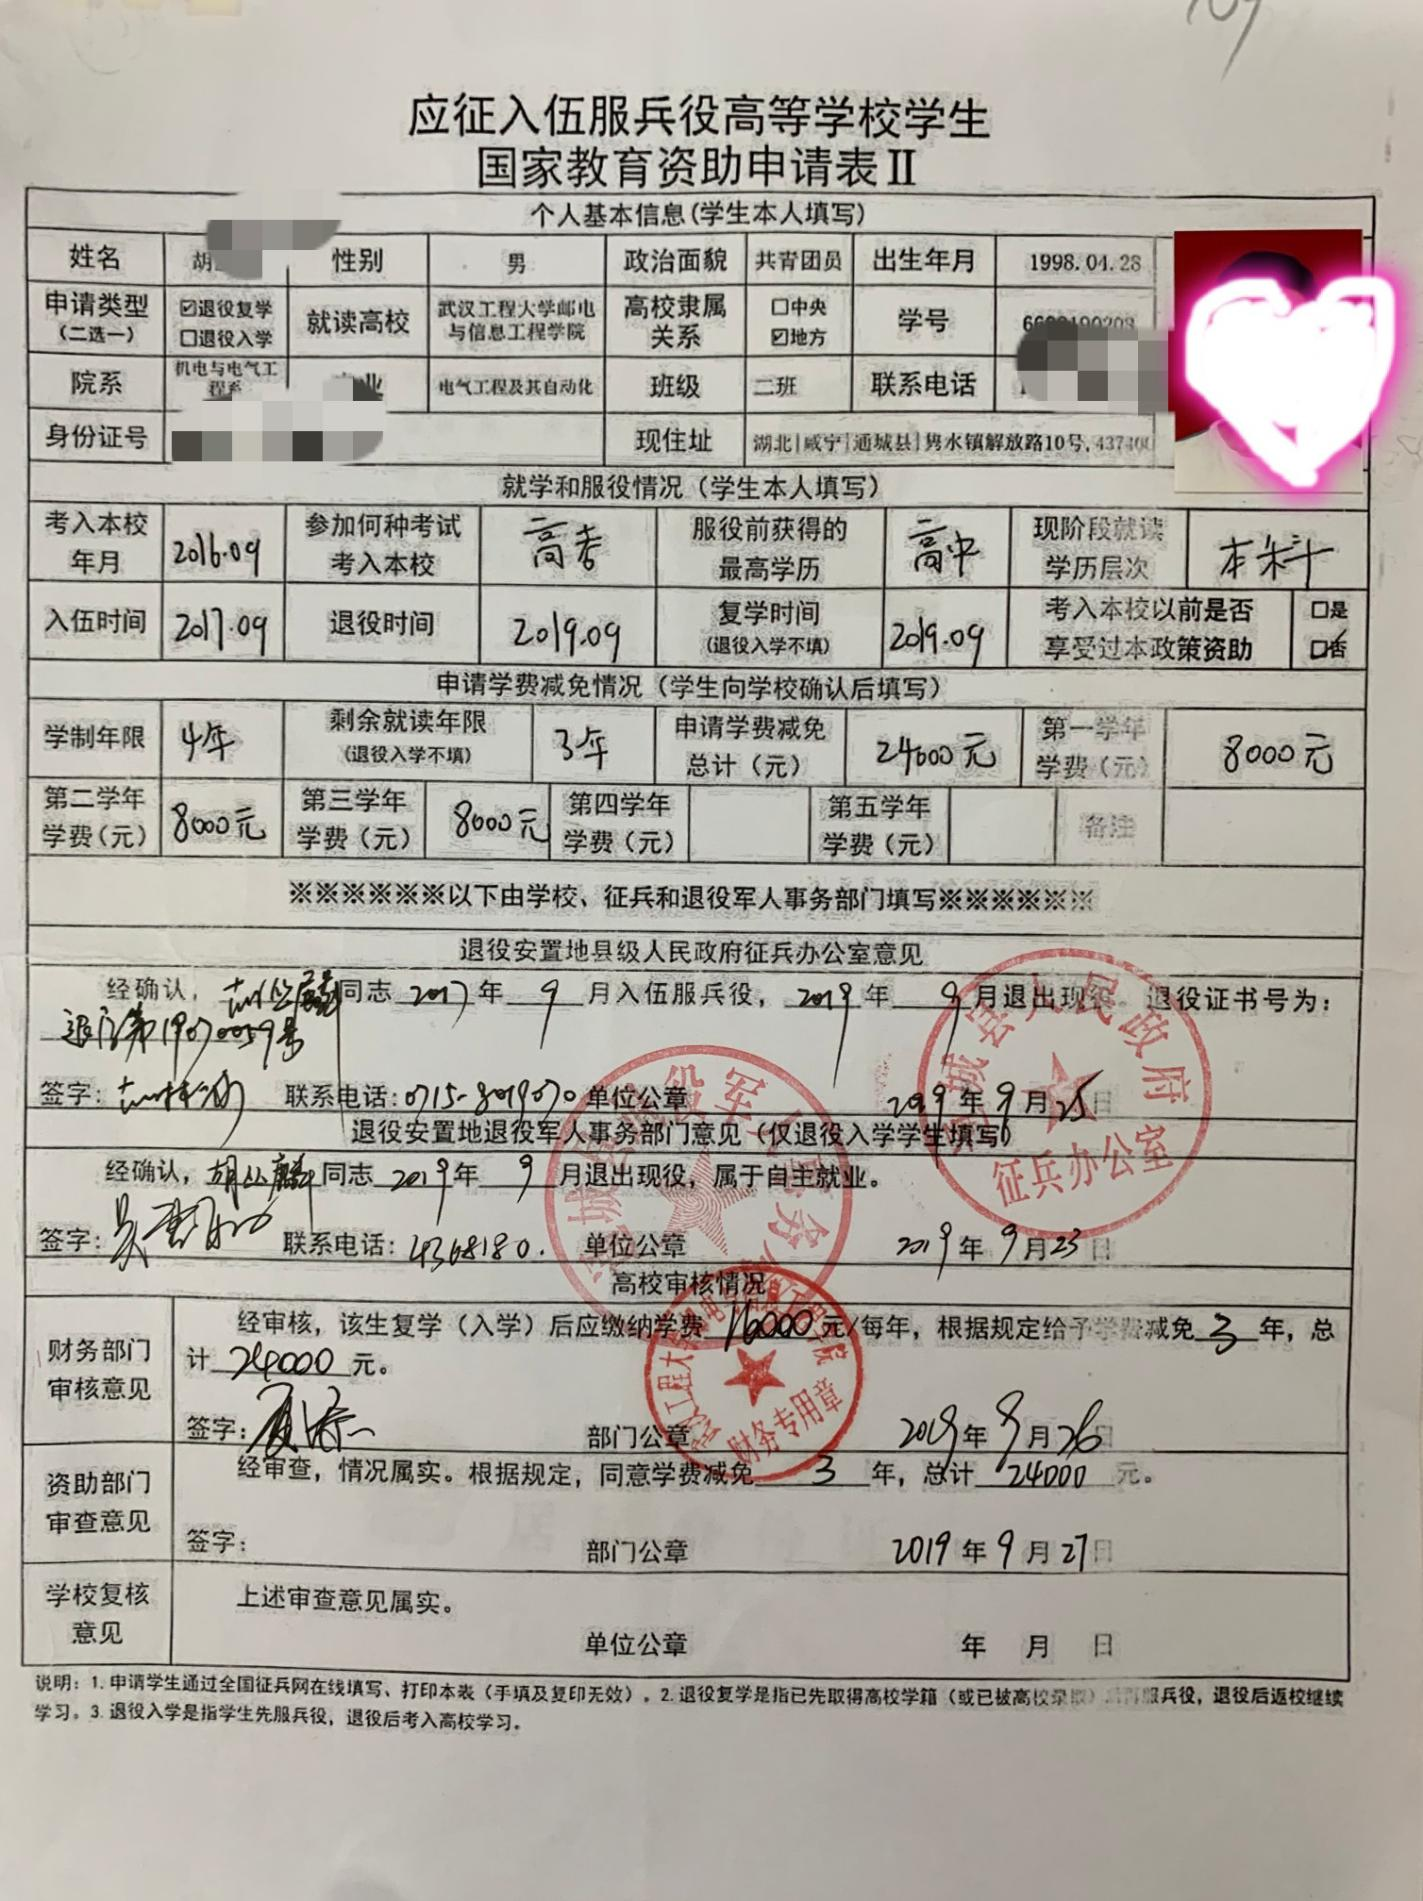 应征入伍服兵役高等学校学生
国家教育资助申请表Ⅱ
个人基本信息(学生本人填写)
姓名 胡 性别 男 政治面貌 共青团员 出生年月 1998.04.28
申请类型(二选一) ☑退役复学 □退役入学 就读高校 武汉工程大学邮电与信息工程学院 高校隶属关系 □中央 ☑地方 学号
院系 机电与电气工程系 电气工程及其自动化 班级 二班 联系电话
身份证号 现住址 湖北|咸宁|通城县|隽水镇解放路10号,437400
就学和服役情况（学生本人填写）
考入本校年月 2016.09 参加何种考试考入本校 高考 服役前获得的最高学历 高中 现阶段就读学历层次 本科
入伍时间 2017.09 退役时间 2019.09 复学时间(退役入学不填) 2019.09 考入本校以前是否享受过本政策资助 □是 ☑否
申请学费减免情况（学生向学校确认后填写）
学制年限 4年 剩余就读年限(退役入学不填) 3年 申请学费减免总计（元） 24000元 第一学年学费（元） 8000元
第二学年学费(元) 8000元 第三学年学费（元） 8000元 第四学年学费（元） 第五学年学费（元） 备注
※※※※※※以下由学校、征兵和退役军人事务部门填写※※※※※※
退役安置地县级人民政府征兵办公室意见
经确认， 同志 2017 年 9 月入伍服兵役， 2019 年 9 月退出现役。退役证书号为：
第19070059号
签字： 联系电话:0715-8019070 单位公章 2019 年 9 月 25 日
退役安置地退役军人事务部门意见（仅退役入学学生填写）
经确认， 同志 2019 年 9 月退出现役，属于自主就业。
签字： 联系电话：4368180. 单位公章 2019 年 9 月 23 日
高校审核情况
财务部门审核意见 经审核，该生复学（入学）后应缴纳学费 16000 元/每年，根据规定给予学费减免 3 年，总
计 24000 元。
签字： 部门公章 2019 年 9 月 26 日
资助部门审查意见 经审查，情况属实。根据规定，同意学费减免 3 年，总计 24000 元。
签字： 部门公章 2019 年 9 月 27 日
学校复核意见 上述审查意见属实。
单位公章 年 月 日
说明：1.申请学生通过全国征兵网在线填写、打印本表（手填及复印无效）。2.退役复学是指已先取得高校学籍（或已被高校录取）后 服兵役，退役后返校继续
学习。3.退役入学是指学生先服兵役，退役后考入高校学习。
通城县人民政府
征兵办公室
财务专用章